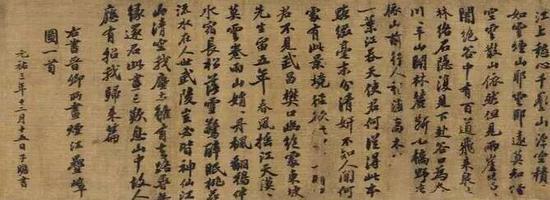 江上愁心千疊山浮空積
如雲煙山耶雲耶遠莫知
空雲散山依然但見兩崖蒼
暗絕谷中有百道飛來泉
林絡石隱復見下赴谷口為
川川平山開林麓斷小橋野店
依山前行人稍度喬木
一葉江吞天使君何從得此本
點綴毫末分清妍不知人間何
處有此境徑欲
君不見武昌樊口幽絕處東坡
先生留五年春風搖江天漠漠
暮雲卷雨山娟娟丹楓翻鴉伴
水宿長松落雪驚醉眠桃花
流水在人世武陵豈必皆神仙江
山清空我塵土雖有去路尋無
緣還君此畫三歎息山中故人
應有招我歸來篇
右書晉卿所畫煙江疊嶂
圖一首
元祐三年十二月十五日子瞻書